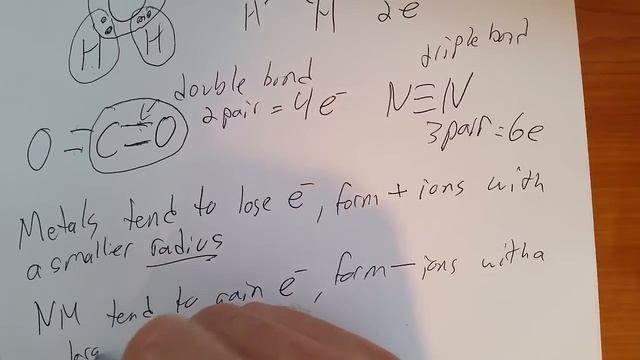 H H 2e
H H
double bond
2 pair = 4e⁻
triple bond
O=C=O
N≡N
3 pair = 6e
Metals tend to lose e⁻, form + ions with
a smaller radius
NM tend to gain e⁻, form – ions with a